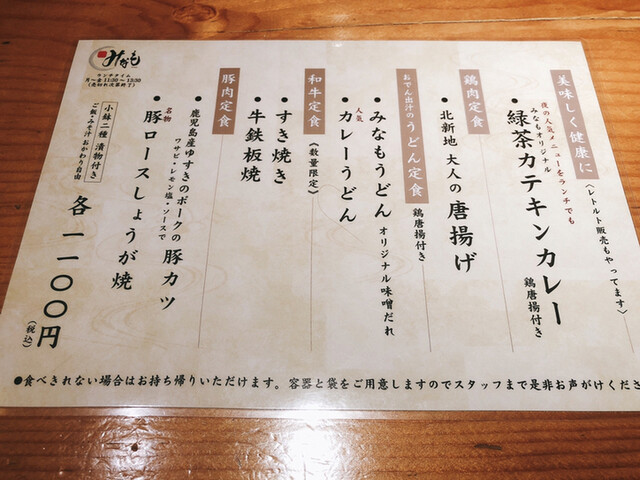 美味しく健康に
（レトルト販売もやってます）
夜の人気メニューをランチでも
みなもオリジナル
緑茶カテキンカレー 鶏唐揚付き
鶏肉定食
北新地 大人の唐揚げ
おでん出汁のうどん定食
鶏唐揚付き
みなもうどん オリジナル味噌だれ
人気
カレーうどん
和牛定食
（数量限定）
すき焼き
牛鉄板焼
豚肉定食
鹿児島産ゆすきのポークの豚カツ
ワサビ・レモン塩・ソースで
名物
豚ロースしょうが焼
小鉢二種 漬物付き
ご飯・みそ汁おかわり自由
各一一〇〇円
（税込）
みなも
ランチタイム
月～金 11:30～13:30
（売切れ次第終了）
●食べきれない場合はお持ち帰りいただけます。容器と袋をご用意しますのでスタッフまで是非お声がけくださ